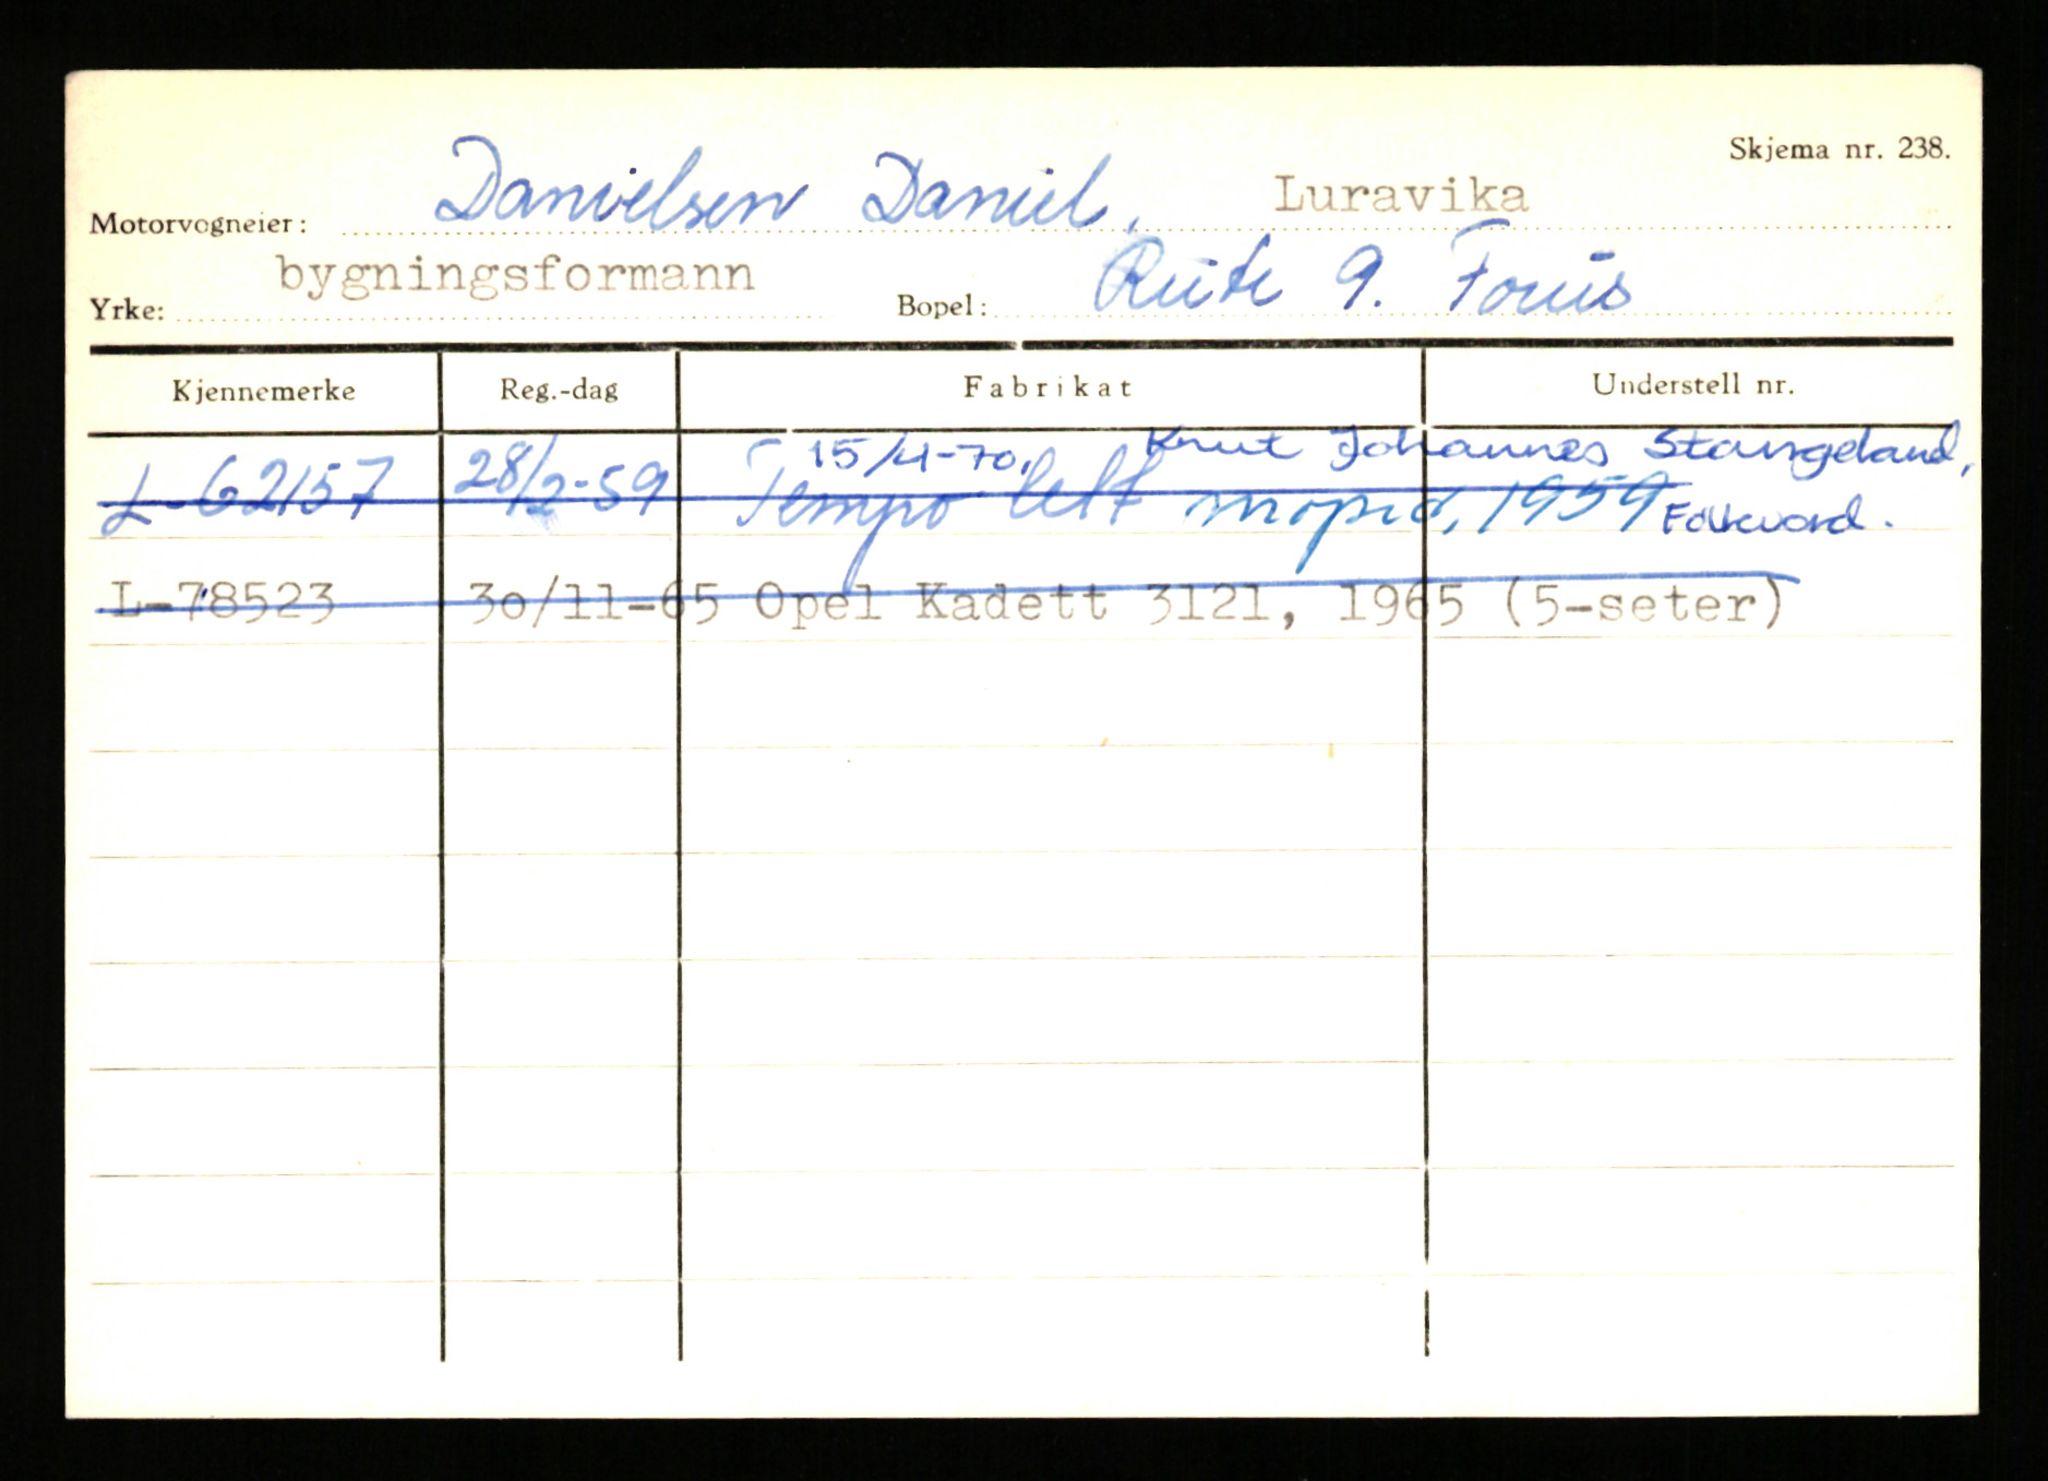 Skjema nr. 238.
Motorvogneier: Danielsen Daniel, Luravika
Yrke: bygningsformann Bopel: Rute 9. Forus
Kjennemerke Reg.-dag Fabrikat Understell nr.
15/4-70. Knut Johannes Stangeland,
L-62157 28/2-59 Tempo lett moped, 1959 Folkvord.
L-78523 30/11-65 Opel Kadett 3121, 1965 (5-seter)